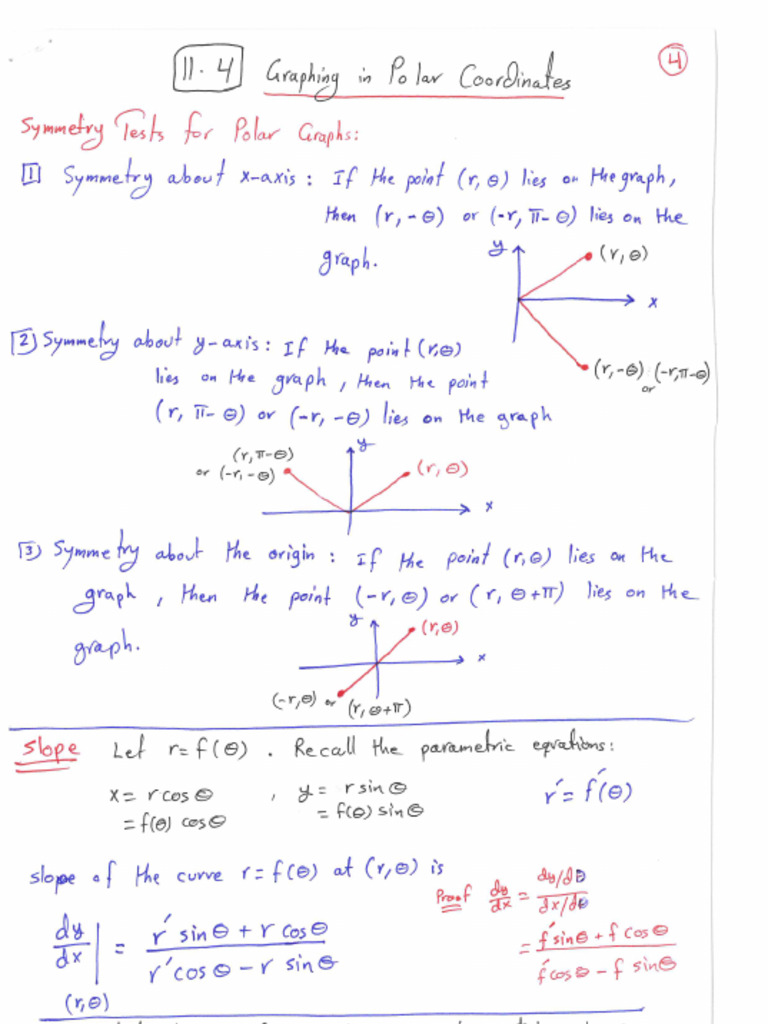 11.4 Graphing in Polar Coordinates
4
Symmetry Tests for Polar Graphs:
1 Symmetry about x-axis: If the point (r, θ) lies on the graph,
then (r, -θ) or (-r, π-θ) lies on the
graph.
y
(r, θ)
x
(r, -θ) or (-r, π-θ)
2 Symmetry about y-axis: If the point (r, θ)
lies on the graph, then the point
(r, π-θ) or (-r, -θ) lies on the graph
(r, π-θ)
or (-r, -θ)
y
(r, θ)
x
3 Symmetry about the origin: If the point (r, θ) lies on the
graph, then the point (-r, θ) or (r, θ+π) lies on the
graph.
y
(r, θ)
x
(-r, θ) or (r, θ+π)
Slope Let r = f(θ). Recall the parametric equations:
x = r cos θ , y = r sin θ
= f(θ) cos θ = f(θ) sin θ
r' = f'(θ)
slope of the curve r = f(θ) at (r, θ) is
dy/dx |(r, θ) = (r' sin θ + r cos θ) / (r' cos θ - r sin θ)
Proof dy/dx = (dy/dθ) / (dx/dθ)
= (f' sin θ + f cos θ) / (f' cos θ - f sin θ)